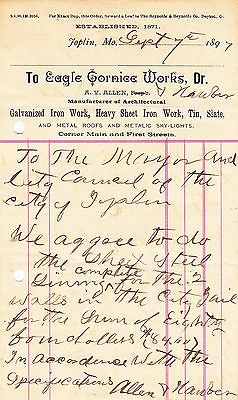 For Exact Dup. this Order, forward a Leaf to The Reynolds & Reynolds Co. Dayton, O.
ESTABLISHED, 1871.
Joplin, Mo. Sept 7th 1897
To Eagle Cornice Works, Dr.
A. V. ALLEN, Prop'r. & Hawber
Manufacturer of Architectural
Galvanized Iron Work, Heavy Sheet Iron Work, Tin, Slate,
AND METAL ROOFS AND METALIC SKY-LIGHTS.
Corner Main and First Streets.
To The Mayor and
City Council of the
City of Joplin
We aggree to do
the Sheit Steel
complete
Lining for the 2
Walls in the City Jail
for the Sum of Eighty
four dollars ($84.00)
In accordence With the
Specifications
Allen & Hawber